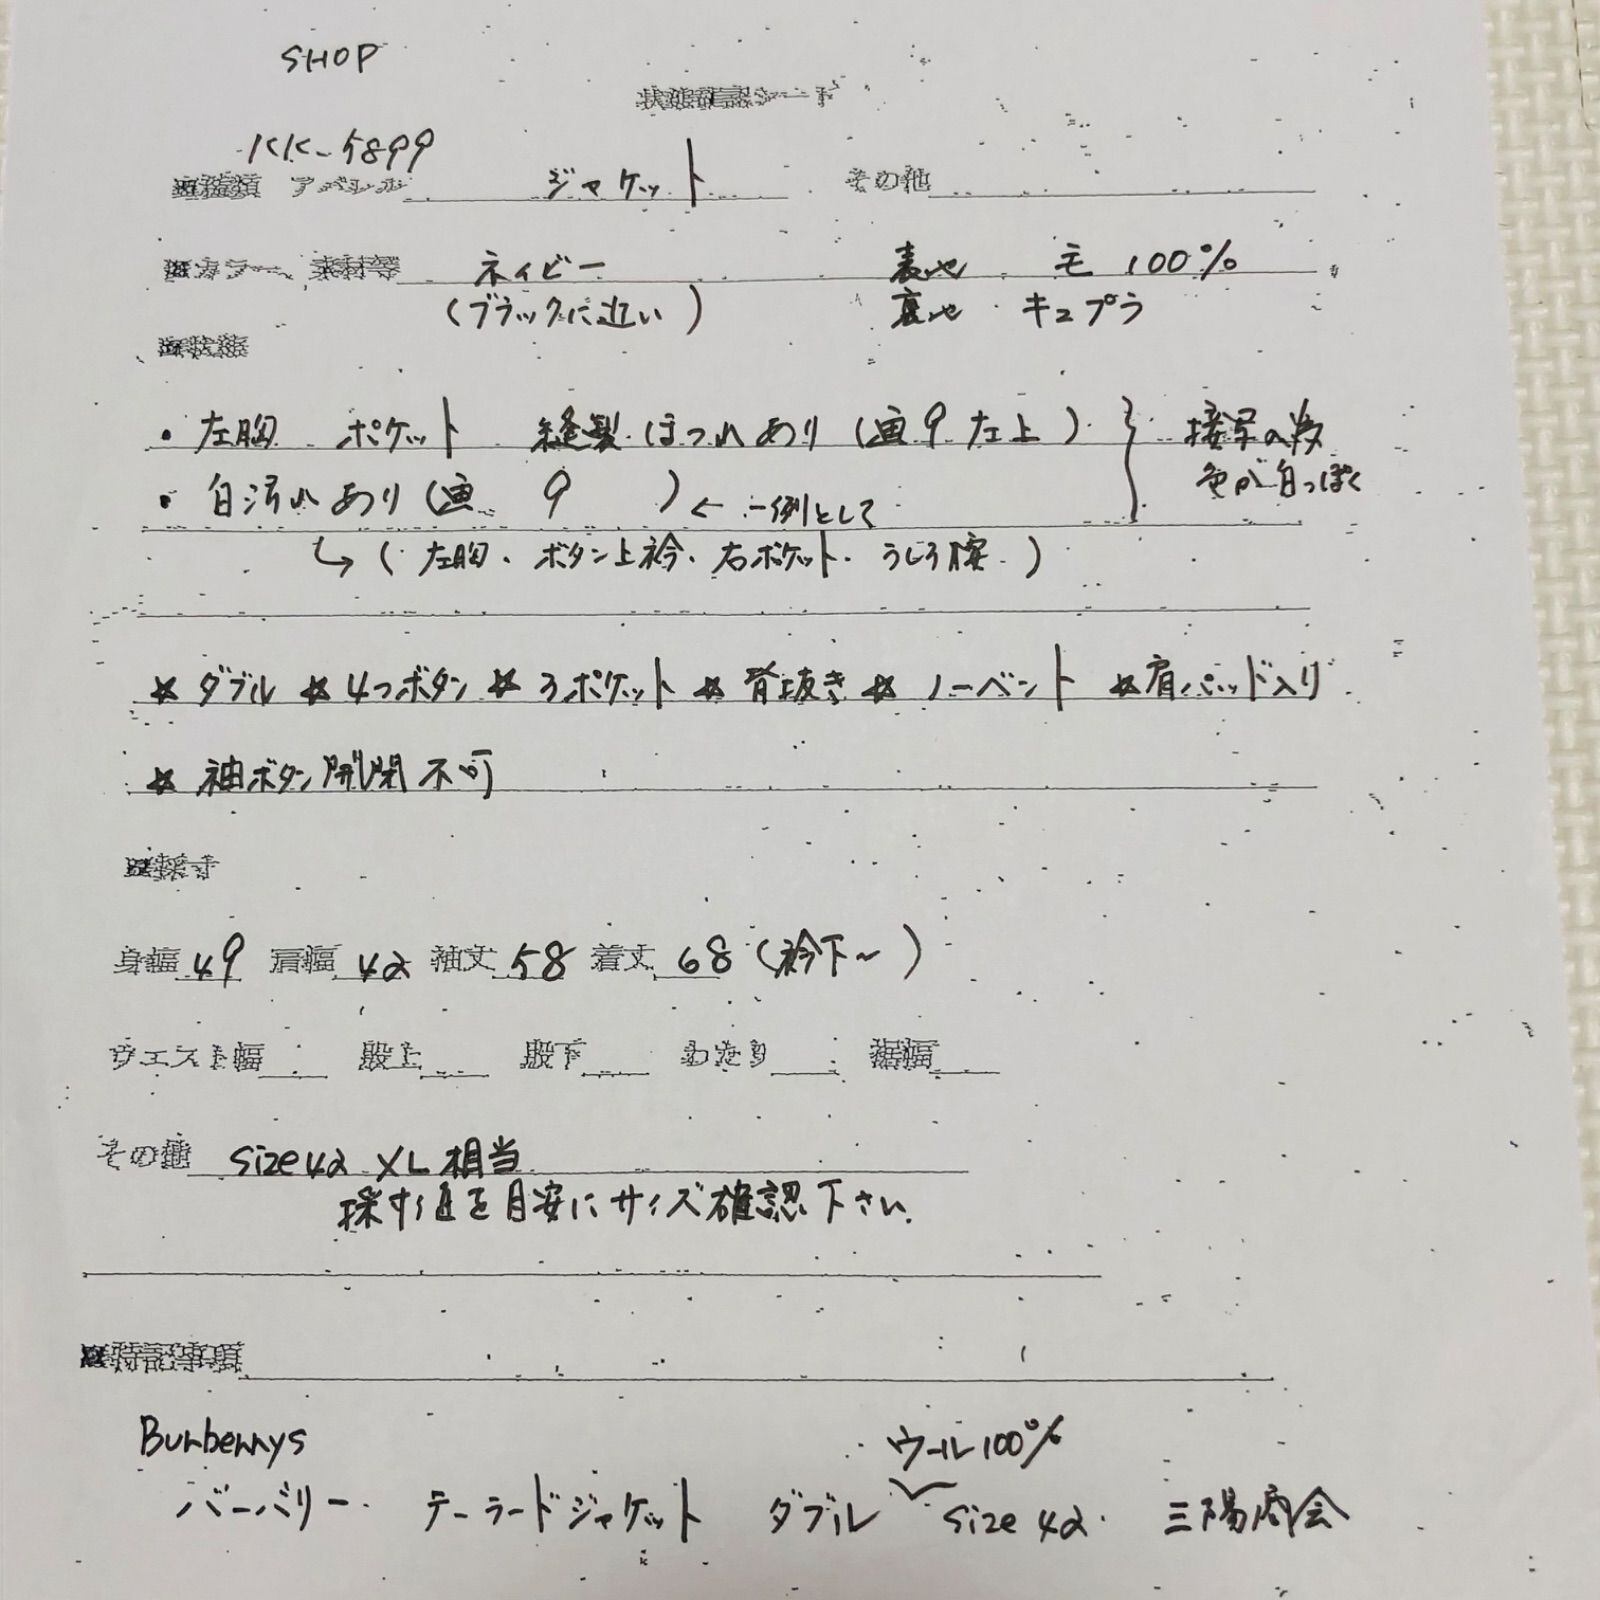 SHOP
状態確認シート
KK-5899
■種類 アパレル ジャケット その他
■カラー、素材等 ネイビー 表地 毛 100%
(ブラックに近い) 裏地 キュプラ
■状態
・左胸 ポケット 縫製ほつれあり(画9左上) 接写の為
・白汚れあり(画 9 )←一例として 色が白っぽく
↳(左胸・ボタン上衿・右ポケット・うしろ腰・)
☆ダブル ☆4つボタン ☆3ポケット ☆背抜き ☆ノーベント ☆肩パッド入り
☆袖ボタン開閉不可
■採寸
身幅 49 肩幅 42 袖丈 58 着丈 68(衿下~)
ウエスト幅 股上 股下 わたり 裾幅
その他 size42 XL相当
採寸値を目安にサイズ確認下さい.
■特記事項
Burberrys ウール100%
バーバリー・ テーラードジャケット ダブル size 42・ 三陽商会